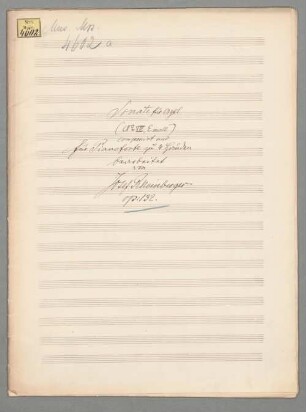 Mus.
Mss.
4602
Mus. Mss.
4602 a
Sonate für Orgel
(No. VIII E moll)
componirt und
für Pianoforte zu 4 Händen
bearbeitet
von
Josef Rheinberger
op: 132.